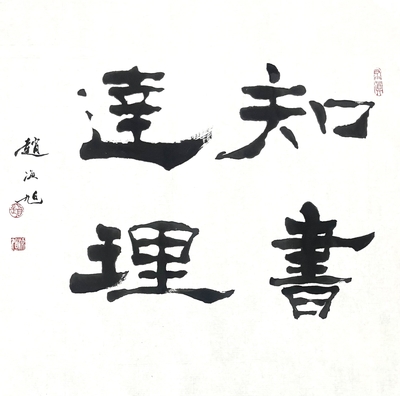 知書
達理
趙
旭